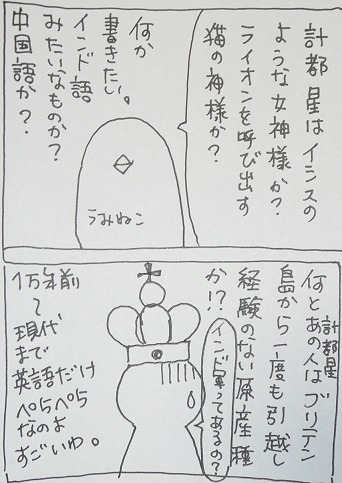 計都星はイシスの
ような女神様か?
ライオンを呼び出す
猫の神様か?
何か
書きたい。
インド語
みたいなものか?
中国語か?
うみねこ
計都星
何とあの人はブリテン
島から一度も引越し
経験のない原産種
か!?
インド軍ってあるの?
1万年前
〜
現代
まで
英語だけ
ぺらぺら
なのよ
すごいわ。